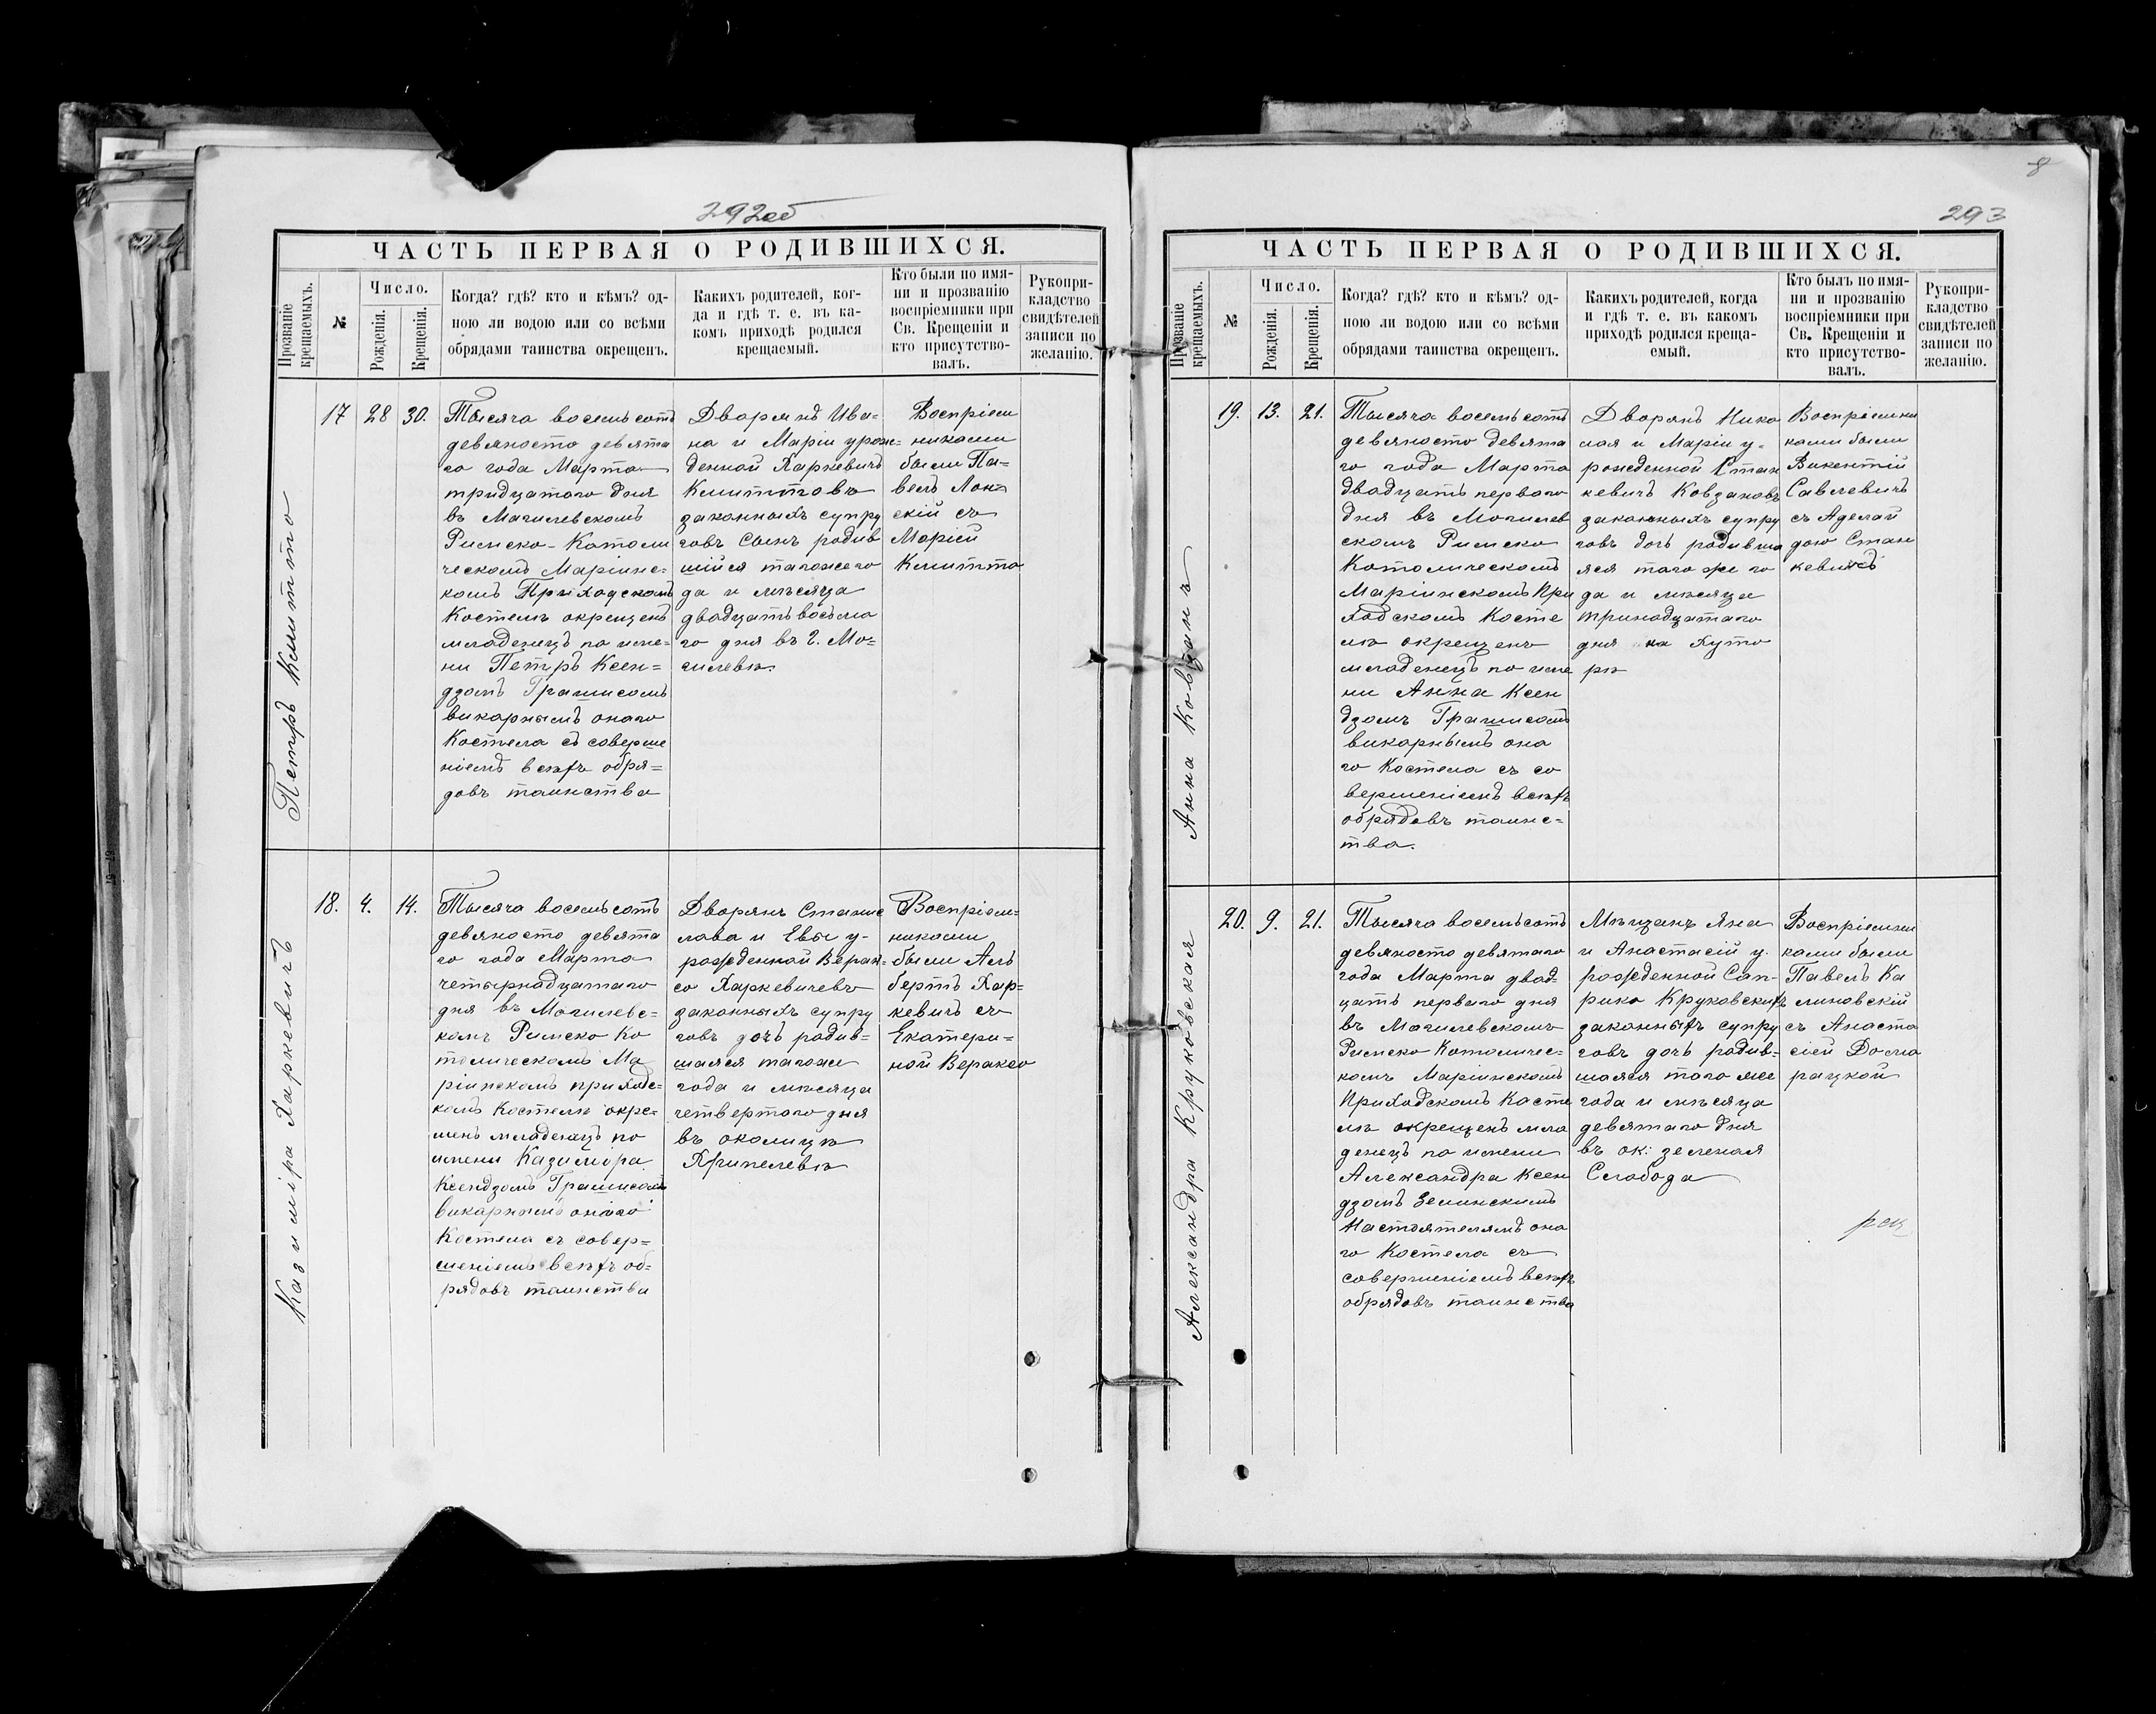 292об
ЧАСТЬ ПЕРВАЯ О РОДИВШИХСЯ.
Прозваніе
крещаемыхъ.
№
Число.
Рожденія.
Крещенія.
Когда? гдѣ? кто и кѣмъ? од-
ною ли водою или со всѣми
обрядами таинства окрещенъ.
Какихъ родителей, ког-
да и гдѣ т. е. въ ка-
комъ приходѣ родился
крещаемый.
Кто были по имя-
ни и прозванію
воспріемники при
Св. Крещеніи и
кто присутство-
валъ.
Рукопри-
кладство
свидѣтелей
записи по
желанію.
Петръ Климтто
17
28
30.
Тысяча восемьсотъ
девяносто девята
го года Марта
тридцатого дня
въ Могилевскомъ
Римско-Католи
ческомъ Маріинс-
комъ Приходскомъ
Костелѣ окрещенъ
младенецъ по име-
ни Петръ Ксен=
дзомъ
викарнымъ онаго
Костела съ соверше
ніемъ всѣхъ обря=
довъ таинства
Дворянъ Ива=
на и Маріи урож=
денной Харкевичъ
законныхъ супру
говъ сынъ родив
шійся тогожего
да и мѣсяца
двадцать восьмо
го дня въ г. Мо=
гилевѣ.
Воспріем
никами
были Па=
велъ
скій съ
Маріей
Казиміра Харкевичъ
18.
4.
14.
Тысяча восемьсотъ
девяносто девята
го года Марта
четырнадцатаго
дня въ Могилевс-
комъ Римско Ка
толическомъ Ма
ріинскомъ приходс-
комъ Костелѣ окре-
щенъ младенецъ по
имени Казиміра
Ксендзомъ
викарнымъ онаго
Костела съ совер=
шеніемъ всѣхъ об=
рядовъ таинства
Дворянъ Станис
лава и Евы у-
рожденной Верак-
со Харкевичевъ
законныхъ супру
говъ дочь родив=
шаяся тогоже
года и мѣсяца
четвертаго дня
въ околицѣ
Воспріем=
никами
были Аль
бертъ Хар=
кевичъ съ
Екатери=
ной Вераксо
8
293
ЧАСТЬ ПЕРВАЯ О РОДИВШИХСЯ.
Прозваніе
крещаемыхъ.
№
Число.
Рожденія.
Крещенія.
Когда? гдѣ? кто и кѣмъ? од-
ною ли водою или со всѣми
обрядами таинства окрещенъ.
Какихъ родителей, когда
и гдѣ т. е. въ какомъ
приходѣ родился креща-
емый.
Кто былъ по имя-
ни и прозванію
воспріемники при
Св. Крещеніи и
кто присутство-
валъ.
Рукопри-
кладство
свидѣтелей
записи по
желанію.
Анна Ковзанъ
19.
13.
21.
Тысяча восемьсотъ
девяносто девята
го года Марта
двадцать перваго
дня въ Могилев
скомъ Римско
Католическомъ
Маріинскомъ При
ходскомъ Косте
лѣ окрещенъ
младенецъ по име
ни Анна Ксен
дзомъ
викарнымъ она
го Костела съ со
вершеніемъ всѣхъ
обрядовъ таинс=
тва.
Дворянъ Нико
лая и Маріи у-
рожденной Стан
кевичъ Ковзановъ
законныхъ супру
говъ дочь родивша
яся того же го
да и мѣсяца
тринадцатаго
дня на Хуто
рѣ
Воспріемни
ками были
Викентій
Савлевичъ
съ Аделаи
дою Стан
кевичъ
Александра Круковская
20.
9.
21.
Тысяча восемьсотъ
девяносто девятаго
года Марта двад=
цать перваго дня
въ Могилевскомъ
Римско Католичес=
комъ Маріинскомъ
Приходскомъ Косте
лѣ окрещенъ мла
денецъ по имени
Александра Ксен
дзомъ Зелинскимъ
Настоятелямъ она
го Костела съ
совершеніемъ всѣхъ
обрядовъ таинства
Мѣщанъ Яна
и Анастасій у-
рожденной Сап-
рико Круковскихъ
законныхъ супру
говъ дочь родив=
шаяся того же
года и мѣсяца
девятаго дня
въ ок: зеленая
Слобода
Воспріемни
ками были
Павелъ Ка
линовскій
съ Анаста
сіей Дома
рацкой
рац